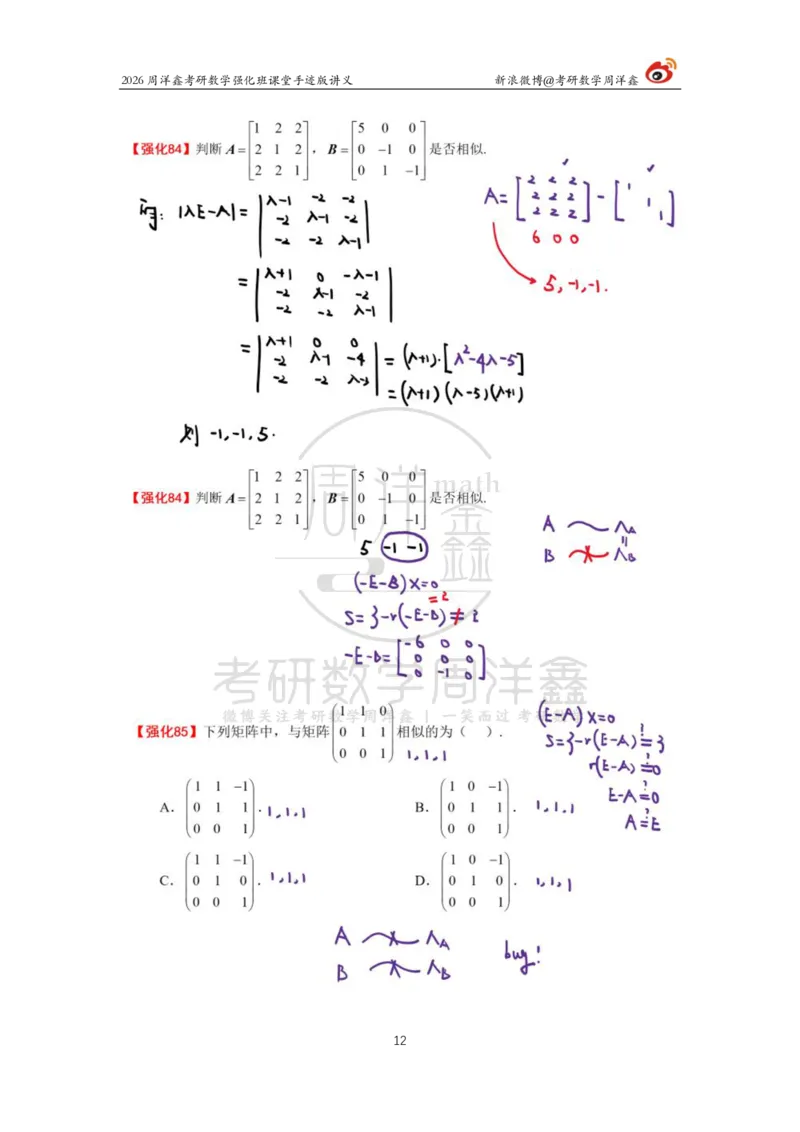 2026 周洋鑫考研数学强化班课堂手迹版讲义 新浪微博@考研数学周洋鑫
【强化84】判断 A = [1 2 2; 2 1 2; 2 2 1], B = [5 0 0; 0 −1 0; 0 1 −1] 是否相似.
A = [2 2 2; 2 2 2; 2 2 2] − [1 1 1]
6 0 0
5, -1, -1.
|λE-A| = |λ-1 -2 -2; -2 λ-1 -2; -2 -2 λ-1|
= |λ+1 0 -λ-1; -2 λ-1 -2; -2 -2 λ-1|
= |λ+1 0 0; -2 λ-1 -4; -2 -2 λ-3| = (λ+1)·[λ²-4λ-5]
= (λ+1)(λ-5)(λ+1)
则 -1, -1, 5.
【强化84】判断 A = [1 2 2; 2 1 2; 2 2 1], B = [5 0 0; 0 −1 0; 0 1 −1] 是否相似.
5 -1 -1
A ~ Λ_A
=
B ~ Λ_B
(-E-B)X=0
=2
S=3-r(-E-B)≠2
-E-B=[-6 0 0; 0 0 0; 0 -1 0]
周洋鑫
math
考研数学周洋鑫
微博关注考研数学周洋鑫 | 一笑而过 考
【强化85】下列矩阵中，与矩阵 (1 1 0; 0 1 1; 0 0 1) 相似的为（ ）.
1, 1, 1
(E-A)X=0
S=3-r(E-A)=3
r(E-A)=0
E-A=0
A=E
A. (1 1 −1; 0 1 1; 0 0 1). 1, 1, 1
B. (1 0 −1; 0 1 1; 0 0 1). 1, 1, 1
C. (1 1 −1; 0 1 0; 0 0 1). 1, 1, 1
D. (1 0 −1; 0 1 0; 0 0 1). 1, 1, 1
A ~ Λ_A
B ~ Λ_B
bug!
12